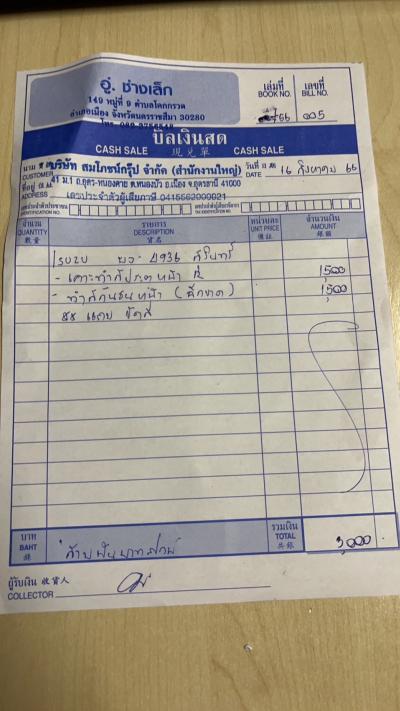 อู่ ช่างเล็ก
149 หมู่ที่ 9 ตำบลโคกกรวด
อำเภอเมือง จังหวัดนครราชสีมา 30280
โทร.
เล่มที่ เลขที่
BOOK NO. BILL NO.
005
บิลเงินสด
CASH SALE 現兌單 CASH SALE
นาม บริษัท สมโภชน์กรุ๊ป จำกัด (สำนักงานใหญ่)
CUSTOMER
วันที่
DATE 16 สิงหาคม 66
ที่อยู่ 41 ม.1 ถ.อุดร-หนองคาย ต.หมูม่น อ.เมือง จ.อุดรธานี 41000
ADDRESS เลขประจำตัวผู้เสียภาษี 0415562000021
IDENTIFICATION NO.
จำนวน รายการ หน่วยละ จำนวนเงิน
QUANTITY DESCRIPTION UNIT PRICE AMOUNT
數量 貨名 價託 銀碼
ISUZU 4936
- เคาะทำสีประตูหน้า 1,500
- ทำสีกันชนหน้า (ฉีกขาด) 1,500
บาท
BAHT
銖
รวมเงิน
TOTAL 3,000
共銀
ผู้รับเงิน 收貨人
COLLECTOR